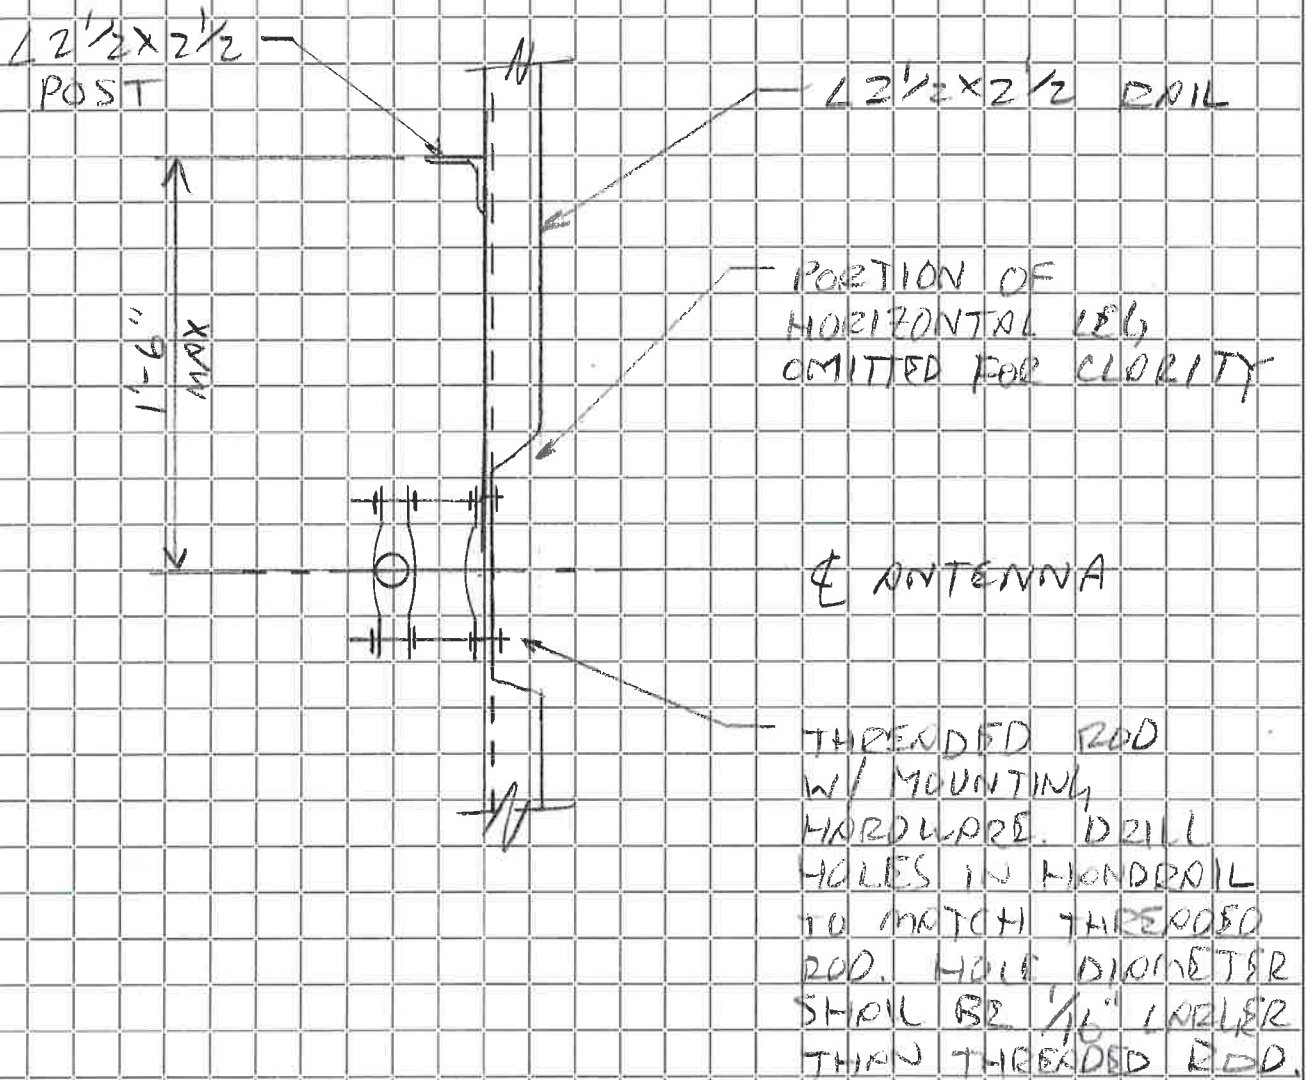 ∠2 1/2 X 2 1/2
POST
∠2 1/2 X 2 1/2 RAIL
1'-6"
MAX
PORTION OF
HORIZONTAL LEG
OMITTED FOR CLARITY
℄ ANTENNA
THREADED ROD
W/ MOUNTING
HARDWARE. DRILL
HOLES IN HANDRAIL
TO MATCH THREADED
ROD. HOLE DIAMETER
SHALL BE 1/16" LARGER
THAN THREADED ROD.